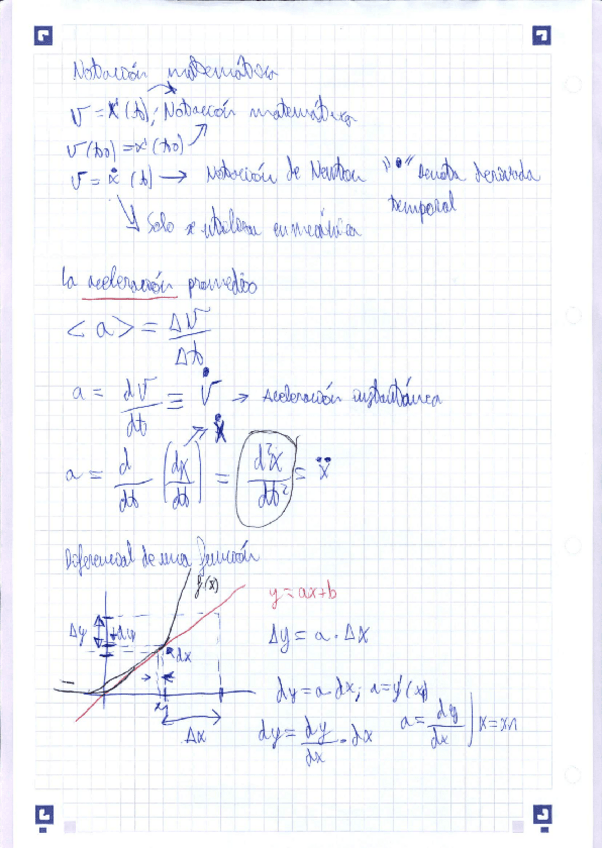 Notación matemática
v = x'(t); Notación matemática
v(t0) = x'(t0)
v = ẋ(t) → Notación de Newton "•" Denota derivada
temporal
Solo se utiliza en mecánica
La aceleración promedio
<a> = Δv/Δt
a = dv/dt ≡ v̇ → Aceleración instantánea
ẋ
a = d/dt (dx/dt) = d²x/dt² = ẍ
Diferencial de una función
f(x)
y = ax+b
Δy
dy
Δy = a · Δx
dx
dy = a · dx; a = y'(x)
Δx
dy = dy/dx · dx
a = dy/dx | x = x1